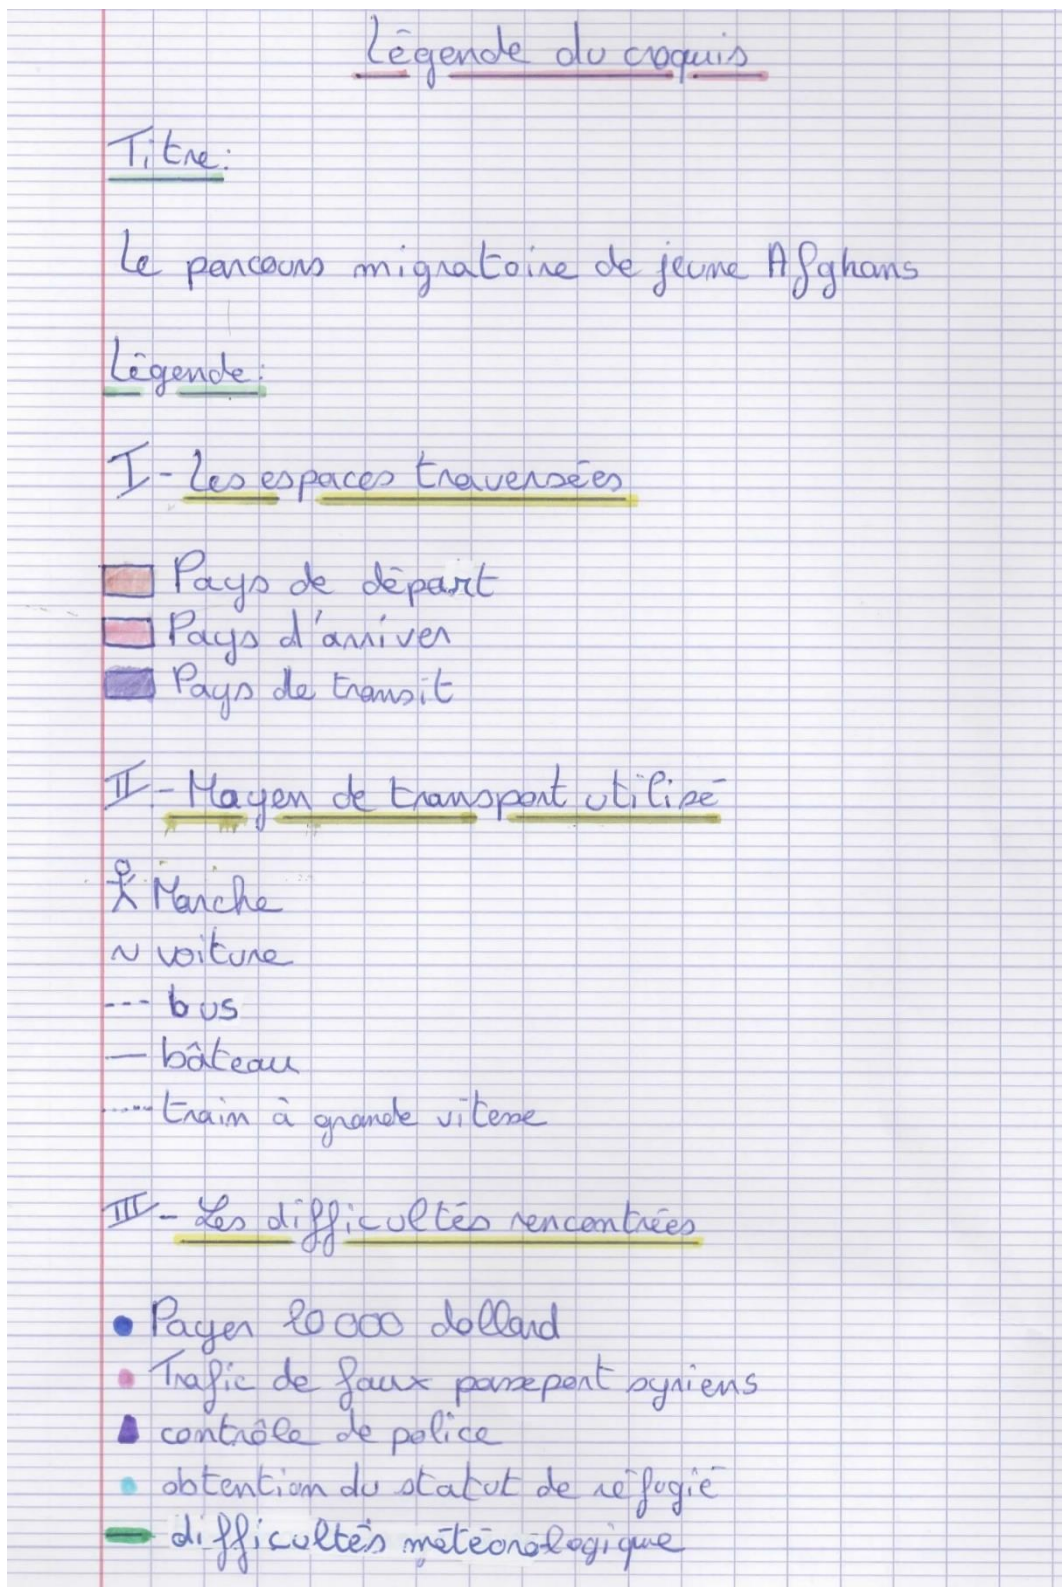 Légende du croquis
Titre:
Le parcours migratoire de jeune Afghans
Légende:
I - Les espaces traversées
Pays de départ
Pays d'arriver
Pays de transit
II - Moyen de transport utilisé
Marche
voiture
bus
bâteau
train à grande vitesse
III - Les difficultés rencontrées
Payer 10 000 dollard
Trafic de faux passeport syriens
contrôle de police
obtention du statut de réfugié
difficultés météorologique